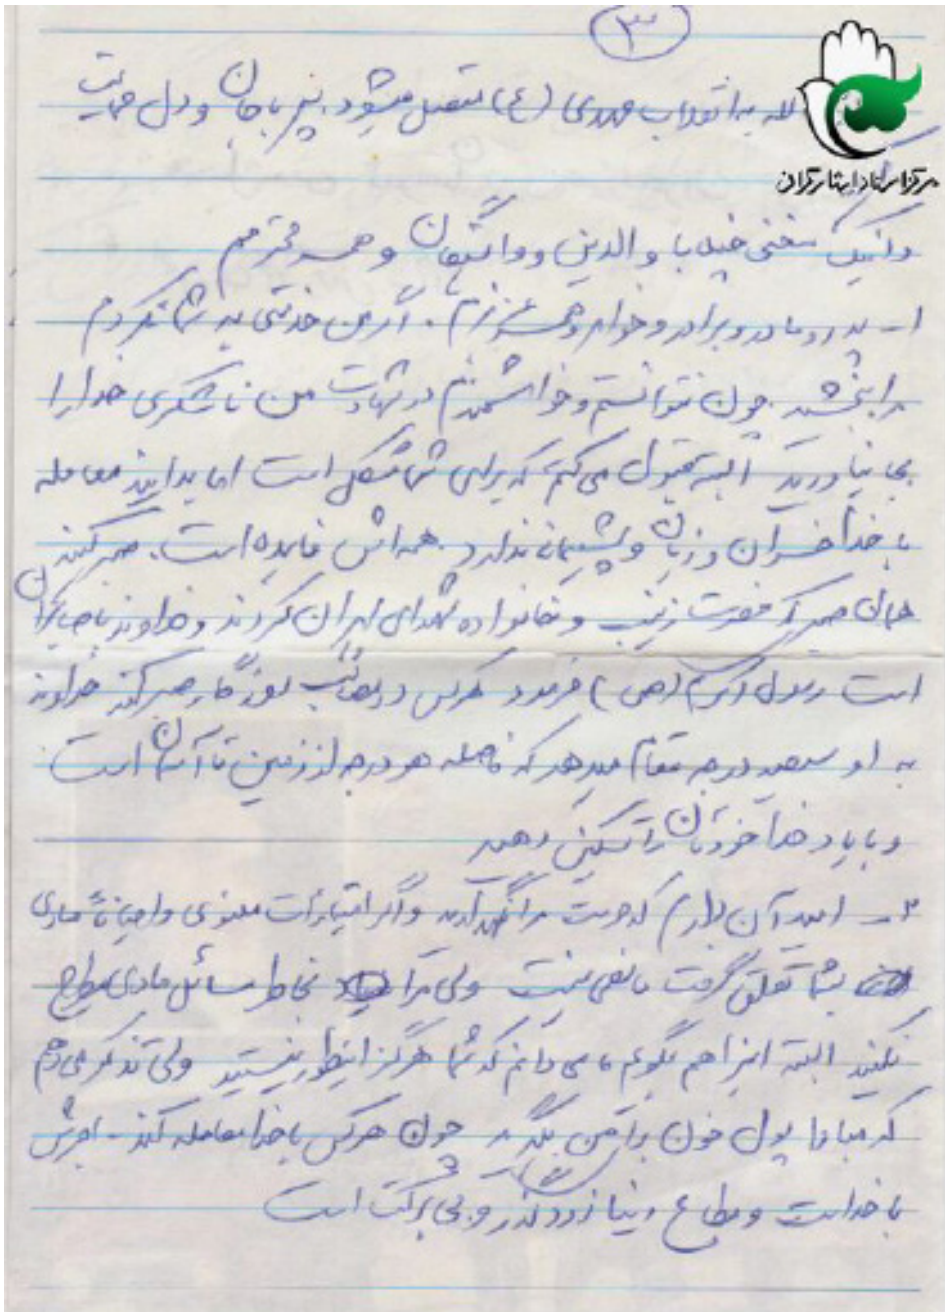 ۳
لله به انقلاب مهدی (ع) متصل میشود. نیز با جان و دل حمایت
مرکز اسناد ایثارگران
و اینک سخنی چند با والدین و وابستگان و همسر محترمم
۱- پدر و مادر و برادر و خواهر و همسر عزیزم، اگر من خدمتی به شما نکردم
مرا ببخشید چون نتوانستم و خواهشمندم در شهادت من ناشکری خدا را
بجا نیاورید البته قبول می کنم که برای شما مشکل است اما بدانید معامله
با خدا خسران و زیان و پشیمانی ندارد همه اش فایده است. صبر کنید
همان صبری که حضرت زینب و خانواده شهدای ایران کردند و خداوند با صابران
است رسول اکرم (ص) فرمود هر کس در مصائب روزگار صبر کند خداوند
به او سیصد درجه مقام میدهد که فاصله هر درجه از زمین تا آسمان است
و با یاد خدا خودتان را تسکین دهید
۲- امید آن دارم که حرمت مرا نگهدارید و اگر امتیازات معنوی و احیاناً مادی
بشما تعلق گرفت مانعی نیست ولی مرا بخاطر مسائل مادی مطرح
نکنید البته اینرا هم بگویم ما می دانم که شما هرگز اینطور نیستید ولی تذکر می دهم
که مبادا پول خون برای من بگیرید چون هر کس با خدا معامله کند اجرش
با خداست و متاع دنیا زودگذر و بی برکت است